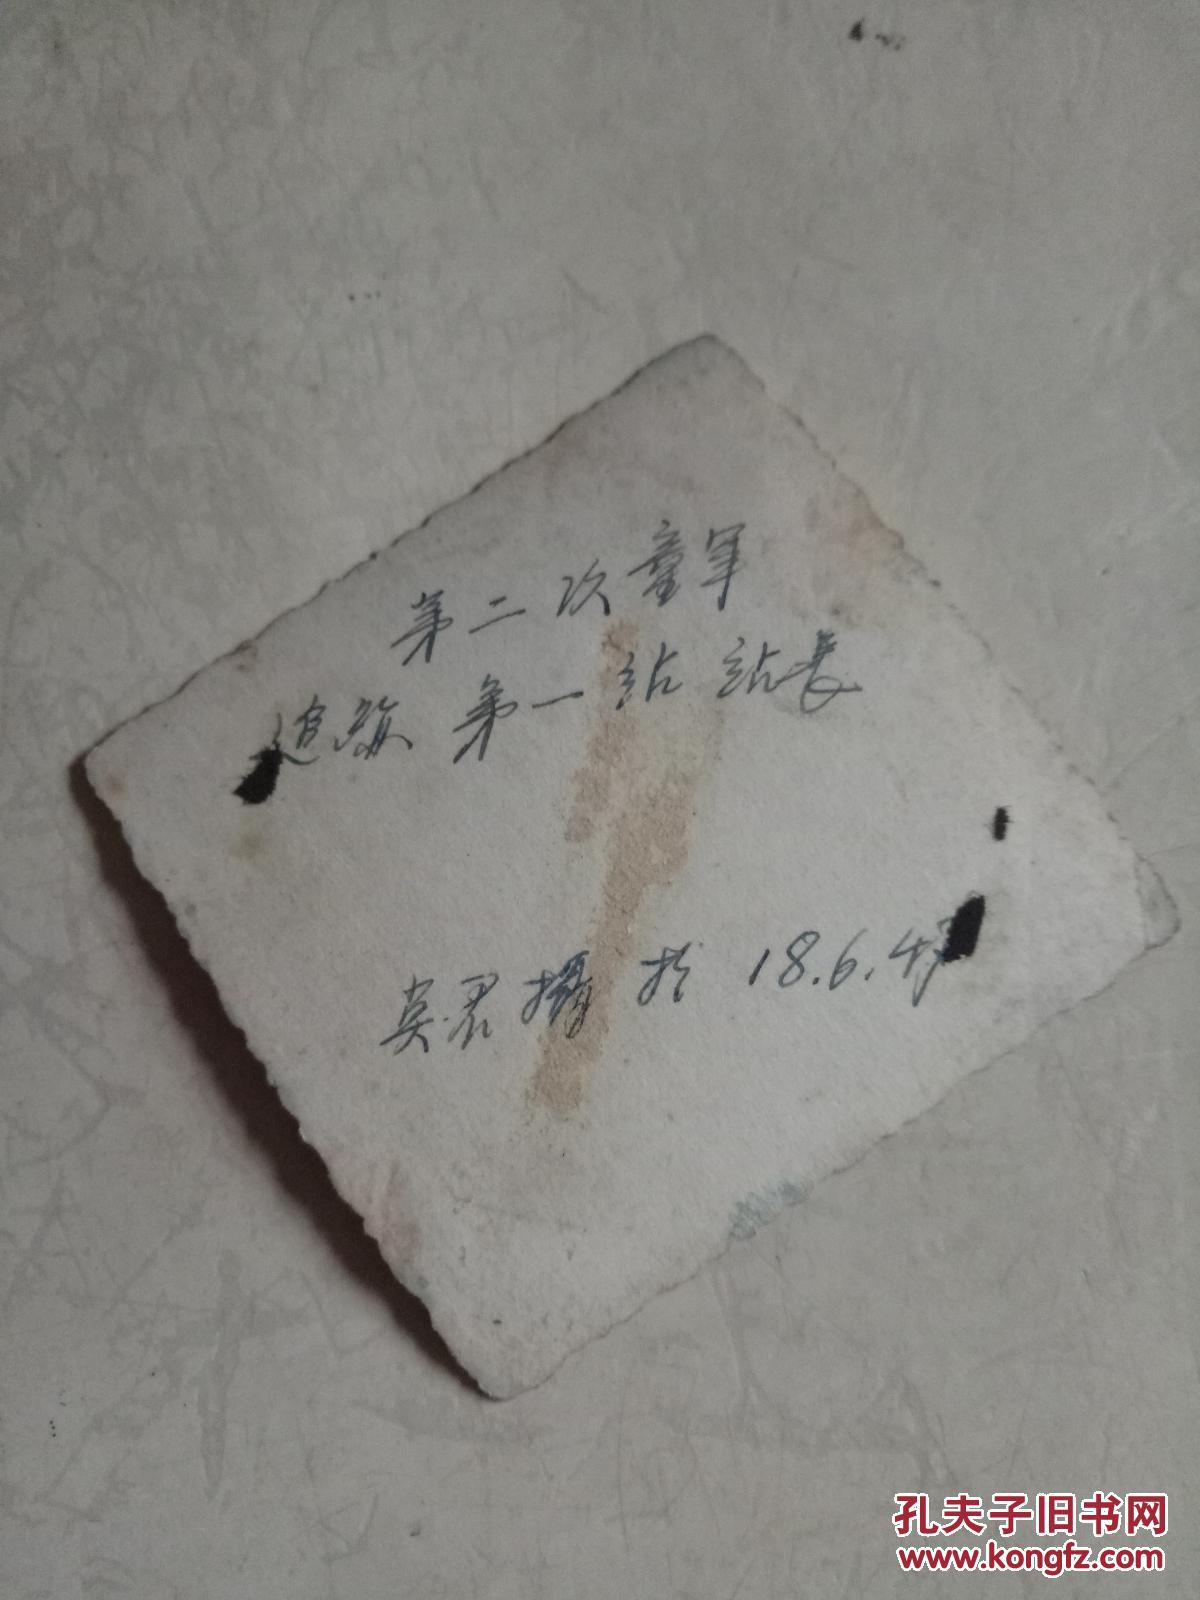 第二次童軍
追踪 第一站 站長
吴君攝於 18.6.4
孔夫子旧书网
www.kongfz.com